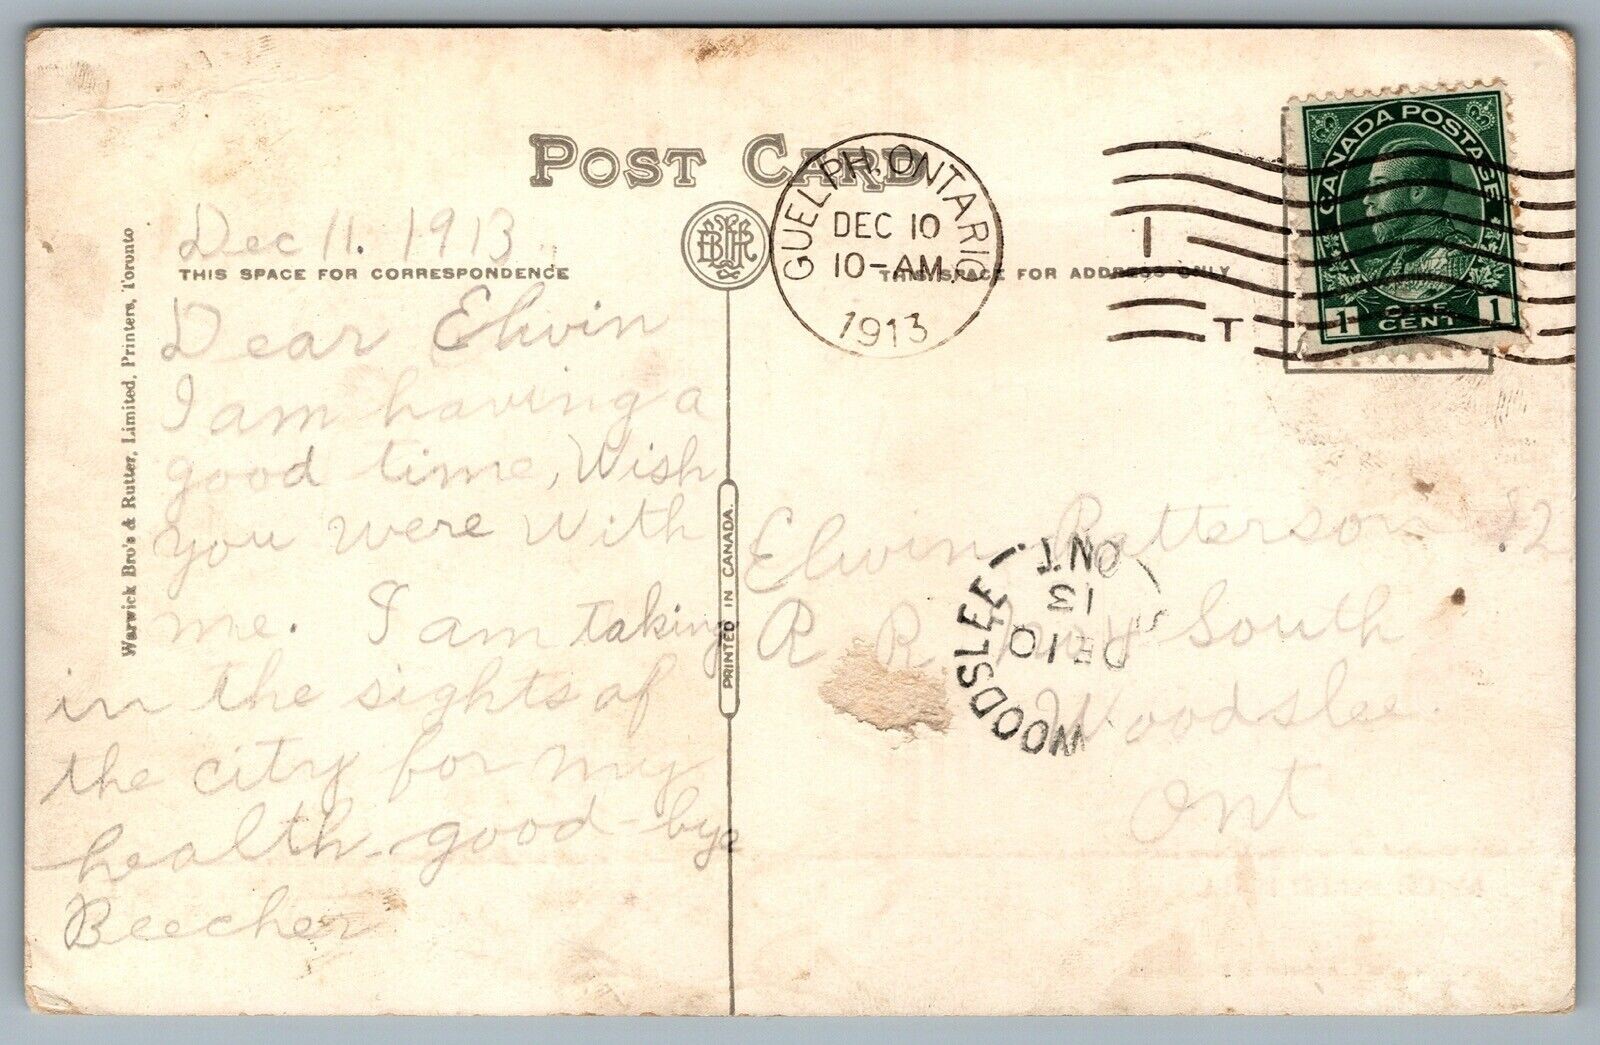 POST CARD
Dec 11. 1913
THIS SPACE FOR CORRESPONDENCE
Dear Elwin
I am having a
good time, Wish
you were with
me. I am taking
in the sights of
the city for my
health. good-bye
Beecher
Warwick Bro's & Rutter, Limited, Printers, Toronto
PRINTED IN CANADA.
GUELPH. ONTARIO
DEC 10
10-AM.
1913
THIS SPACE FOR ADDRESS ONLY
CANADA POSTAGE
1 ONE CENT 1
I
T
Elwin Patterson
R R South
Woodslee.
Ont
WOODSLEE
ONT
DE 10
13